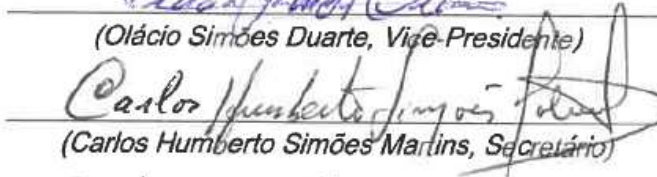 (Olácio Simões Duarte, Vice-Presidente)
Carlos Humberto Simões
(Carlos Humberto Simões Martins, Secretário)